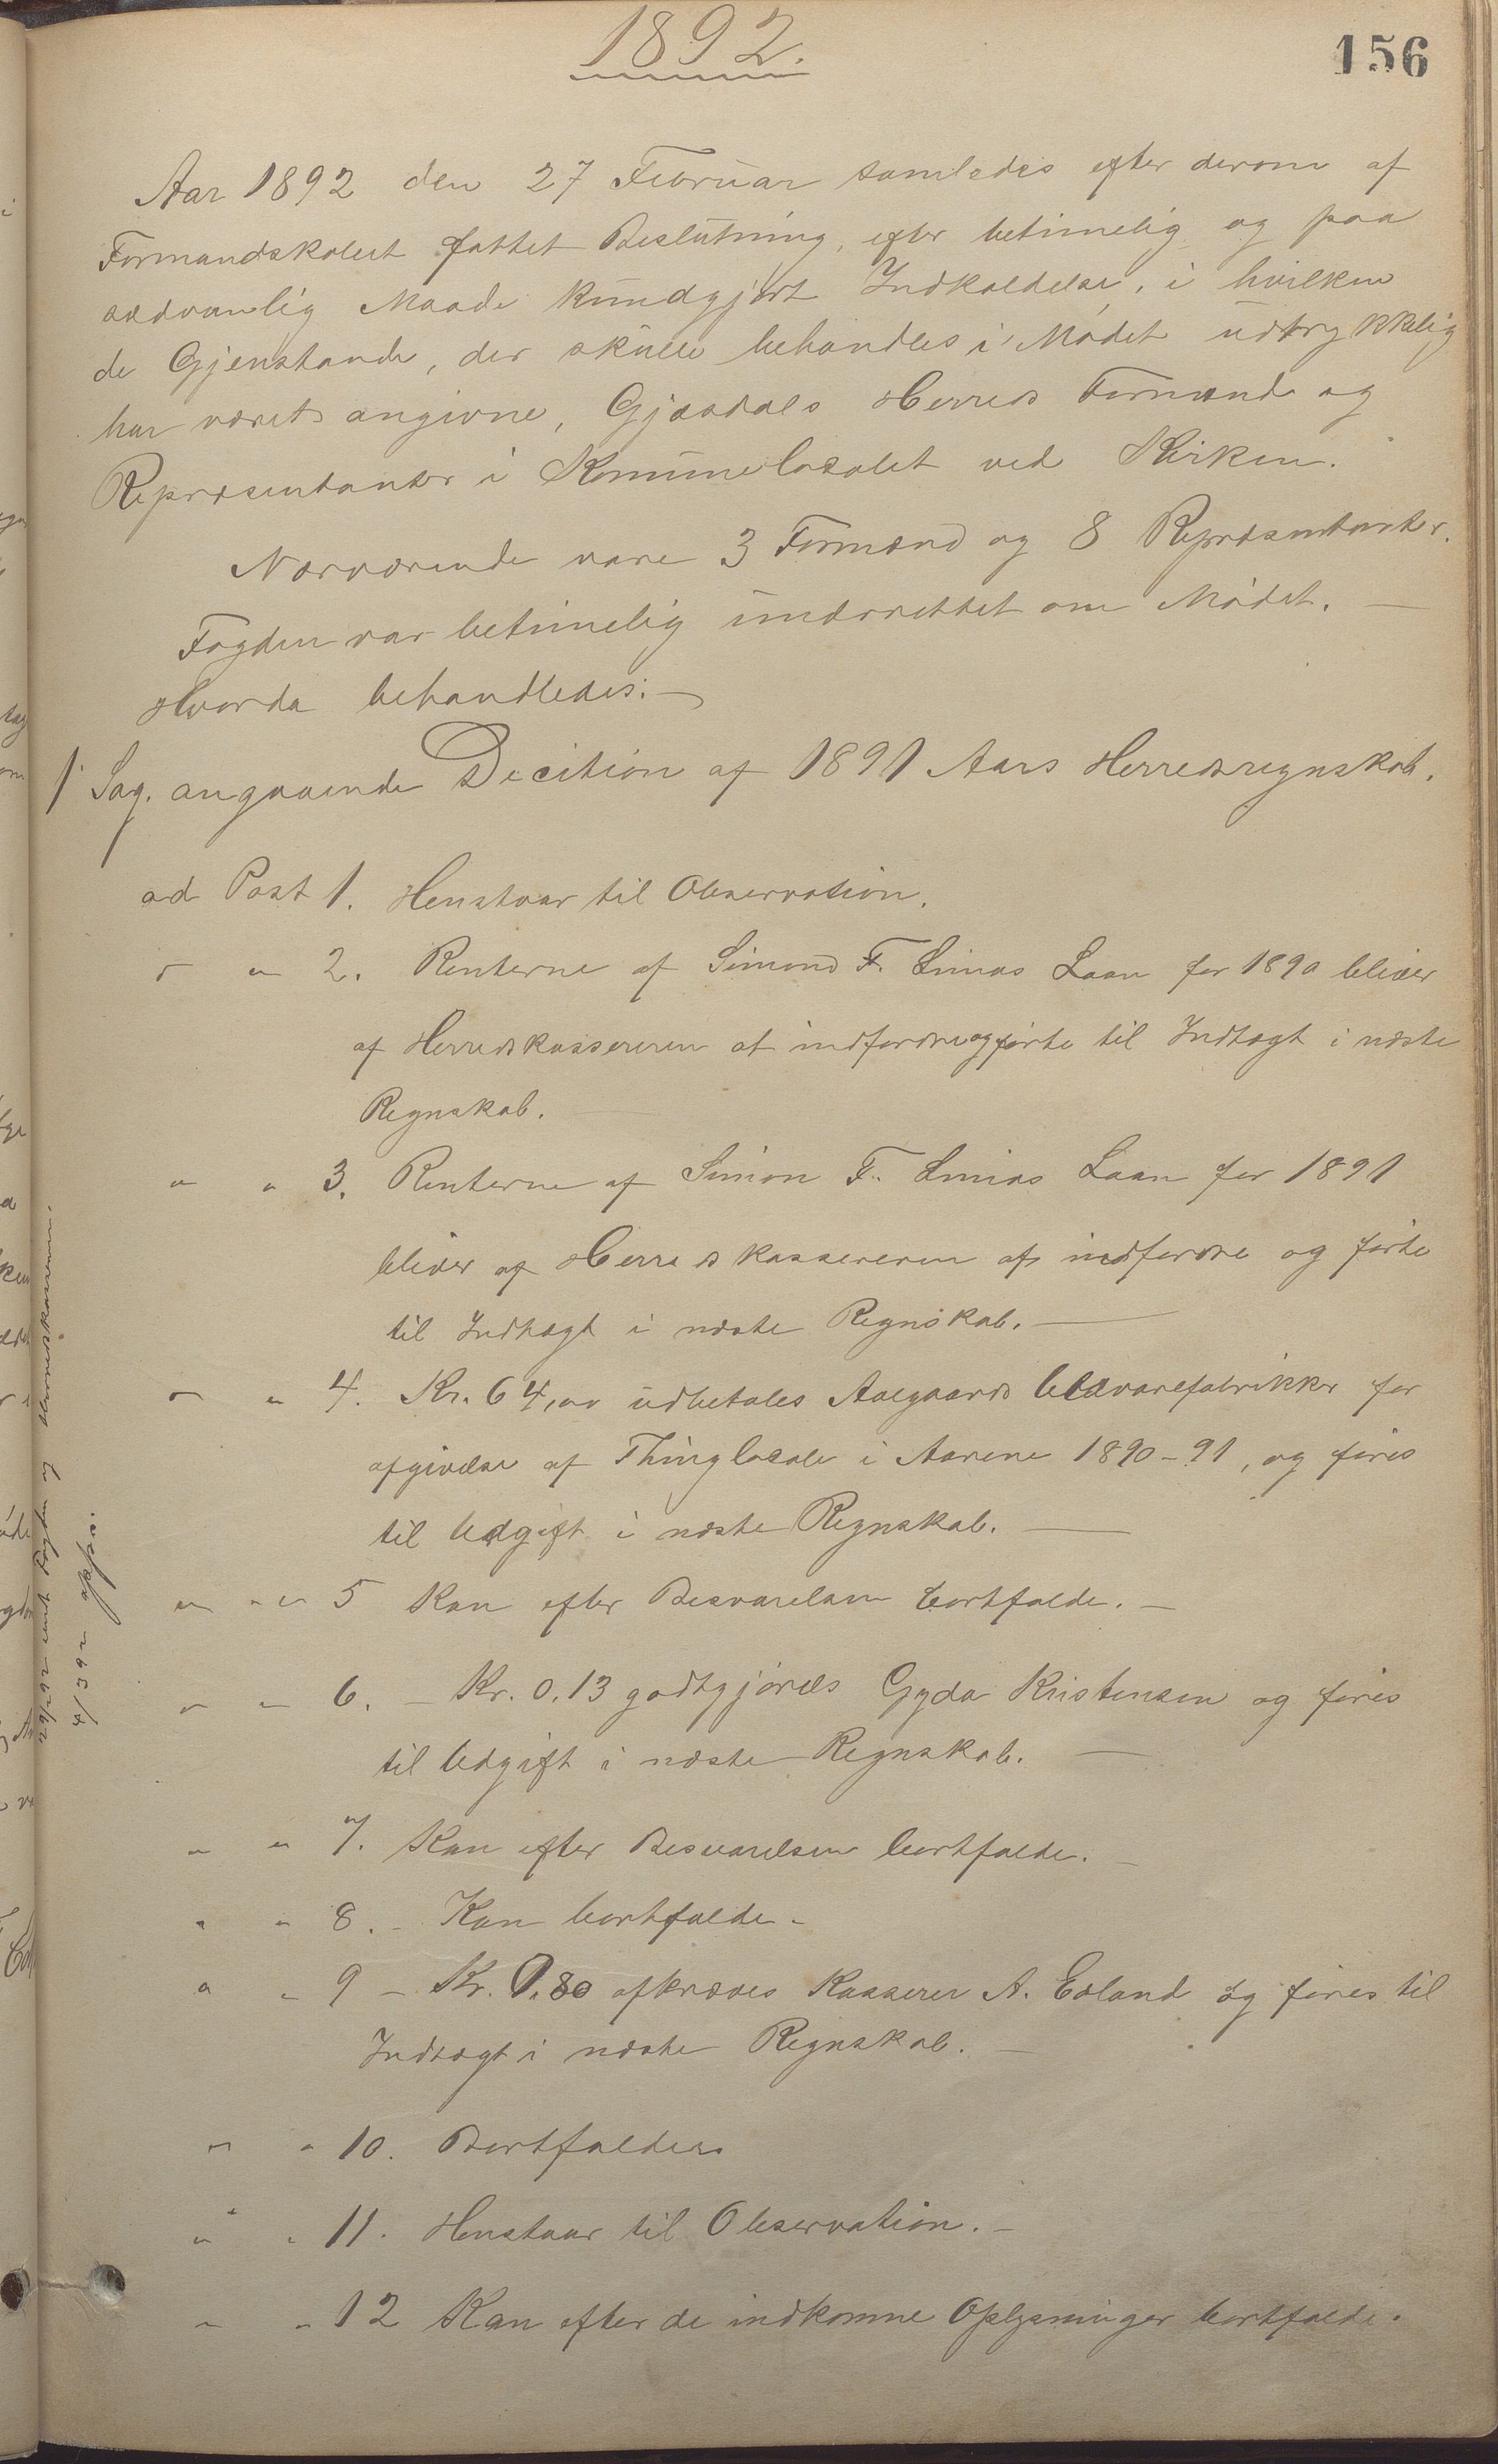 1892.
156
Aar 1892 den 27 Februar samledes efter derom af
Formandskabet fattet Beslutning, efter betimelig og paa
sædvanlig Maade kundgjort Indkaldelse, i hvilken
de Gjenstande, der skulle behandles i Mødet udtrykkelig
har været angivne, Gjæsdals Herreds Formænd og
Repræsentanter i Kommunelocalet ved Kirken.
Nærværende vare 3 Formænd og 8 Repræsentanter.
Fogden var betimelig underrettet om Mødet. —
Hvorda behandledes: —
1 Sag. angaaende Decition af 1891 Aars Herredsregnskab.
ad Post 1. Henstaar til Observation.
" " 2. Renterne af Simond F. Limas Laan for 1890 bliver
af Herredskassereren at indfordre og førte til Indtægt i næste
Regnskab. —
" " 3. Renterne af Simon F. Limas Laan for 1891
bliver af Herredskassereren at indfordre og førte
til Indtægt i næste Regnskab. —
" " 4. Kr. 64,00 udbetales Aalgaards Uldvarefabrikker for
afgivelse af Thinglocale i Aarene 1890-91, og føres
til Udgift i næste Regnskab. —
" " 5 Kan efter Besvarelsen bortfalde. —
" " 6. — Kr. 0.13 godtgjøres Gyda Kristensen og føres
til Udgift i næste Regnskab. —
" " 7. Kan efter Besvarelsen bortfalde. —
" " 8. — Kan bortfalde —
" " 9 — Kr. 0.80 afkræves Kasserer A. Edland og føres til
Indtægt i næste Regnskab. —
" " 10. Bortfalder
" " 11. Henstaar til Observation. —
" " 12 Kan efter de indkomne Oplysninger bortfalde.
29/2 92 sendt Fogden og Herredskasseren.
4/3 92